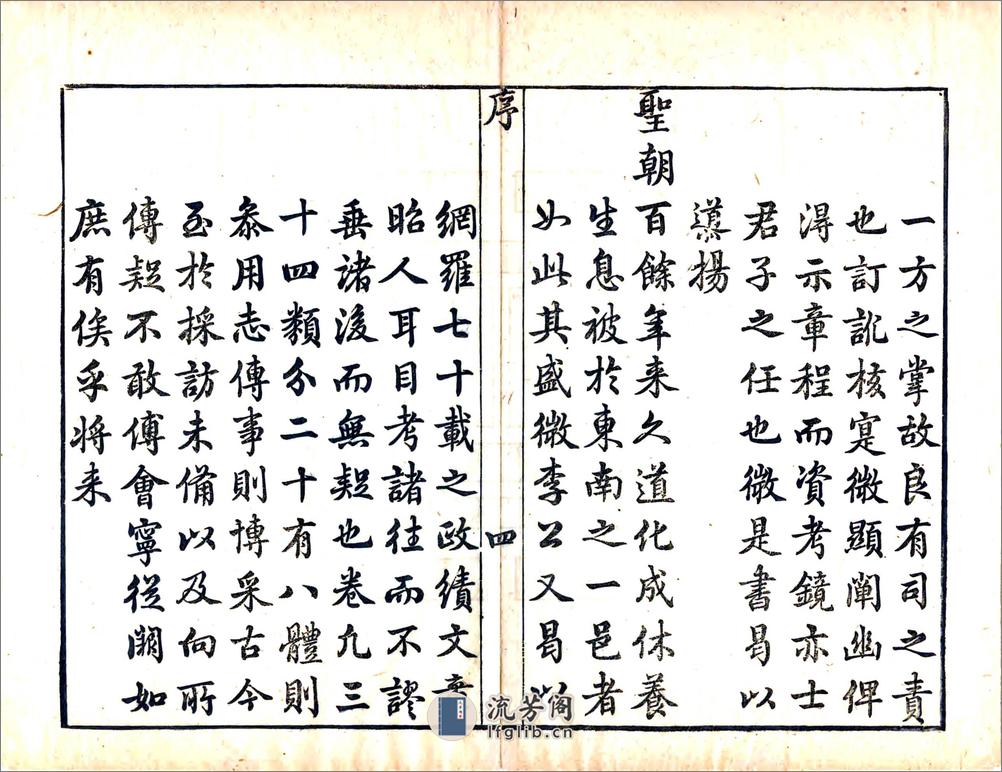 一方之掌故良有司之責
也訂訛核寔微顯闡幽俾
淂示章程而資考鏡亦士
君子之任也微是書曷以
導揚
聖朝百餘年来久道化成休養
生息被於東南之一邑者
如此其盛微李公又曷以
序
四
網羅七十載之政績文章
昭人耳目考諸往而不謬
垂諸後而無疑也卷凢三
十四類分二十有八體則
叅用志傳事則博采古今
至於採訪未備以及向所
傳疑不敢傅會寧從闕如
庶有俟乎將来
流芳阁
lfglib.cn